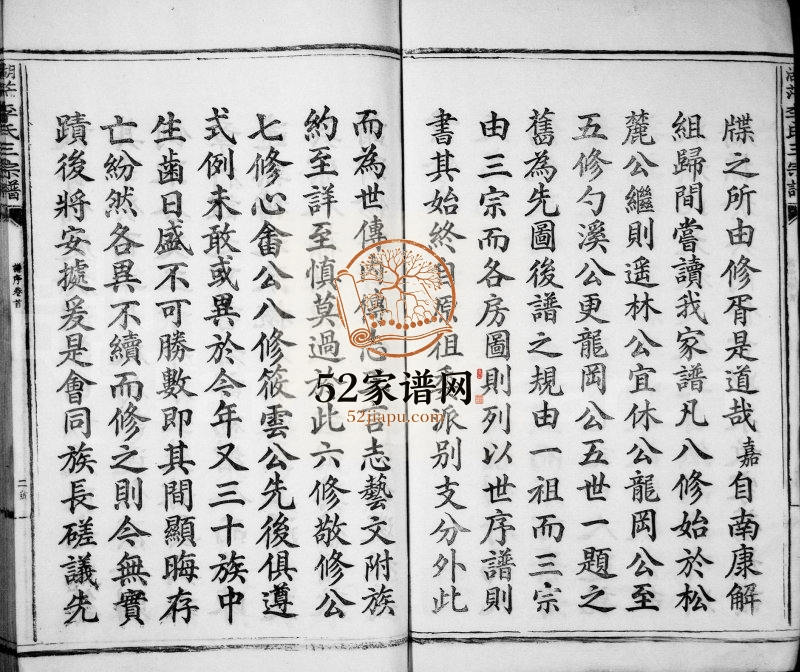 牒之所由修胥是道哉嘉自南康解
組歸間嘗讀我家譜凡八修始於松
麓公繼則遥林公宜休公龍岡公至
五修勺溪公更龍岡公五世一題之
舊為先圖後譜之規由一祖而三宗
由三宗而各房圖則列以世序譜則
書其始終自原祖 派別支分外此
而為世傳 志藝文附族
約至詳至慎莫過 此六修敬修公
七修心畬公八修筱雲公先後俱遵
式例未敢或異於今年又三十族中
生齒日盛不可勝數即其間顯晦存
亡紛然各異不續而修之則今無實
蹟後將安據爰是會同族長磋議先
李氏三宗譜
譜序卷首
52家谱网
52jiapu.com